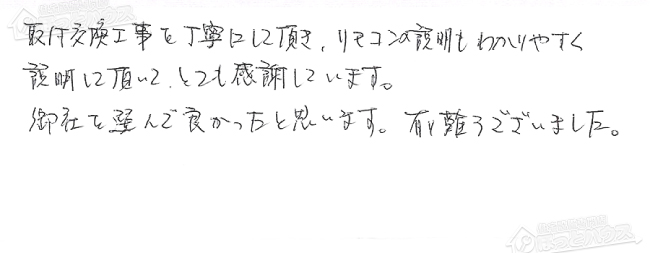 取付交換工事を丁寧にして頂き、リモコンの説明もわかりやすく
説明して頂いて、とても感謝しています。
御社を選んで良かったと思います。有難うございました。